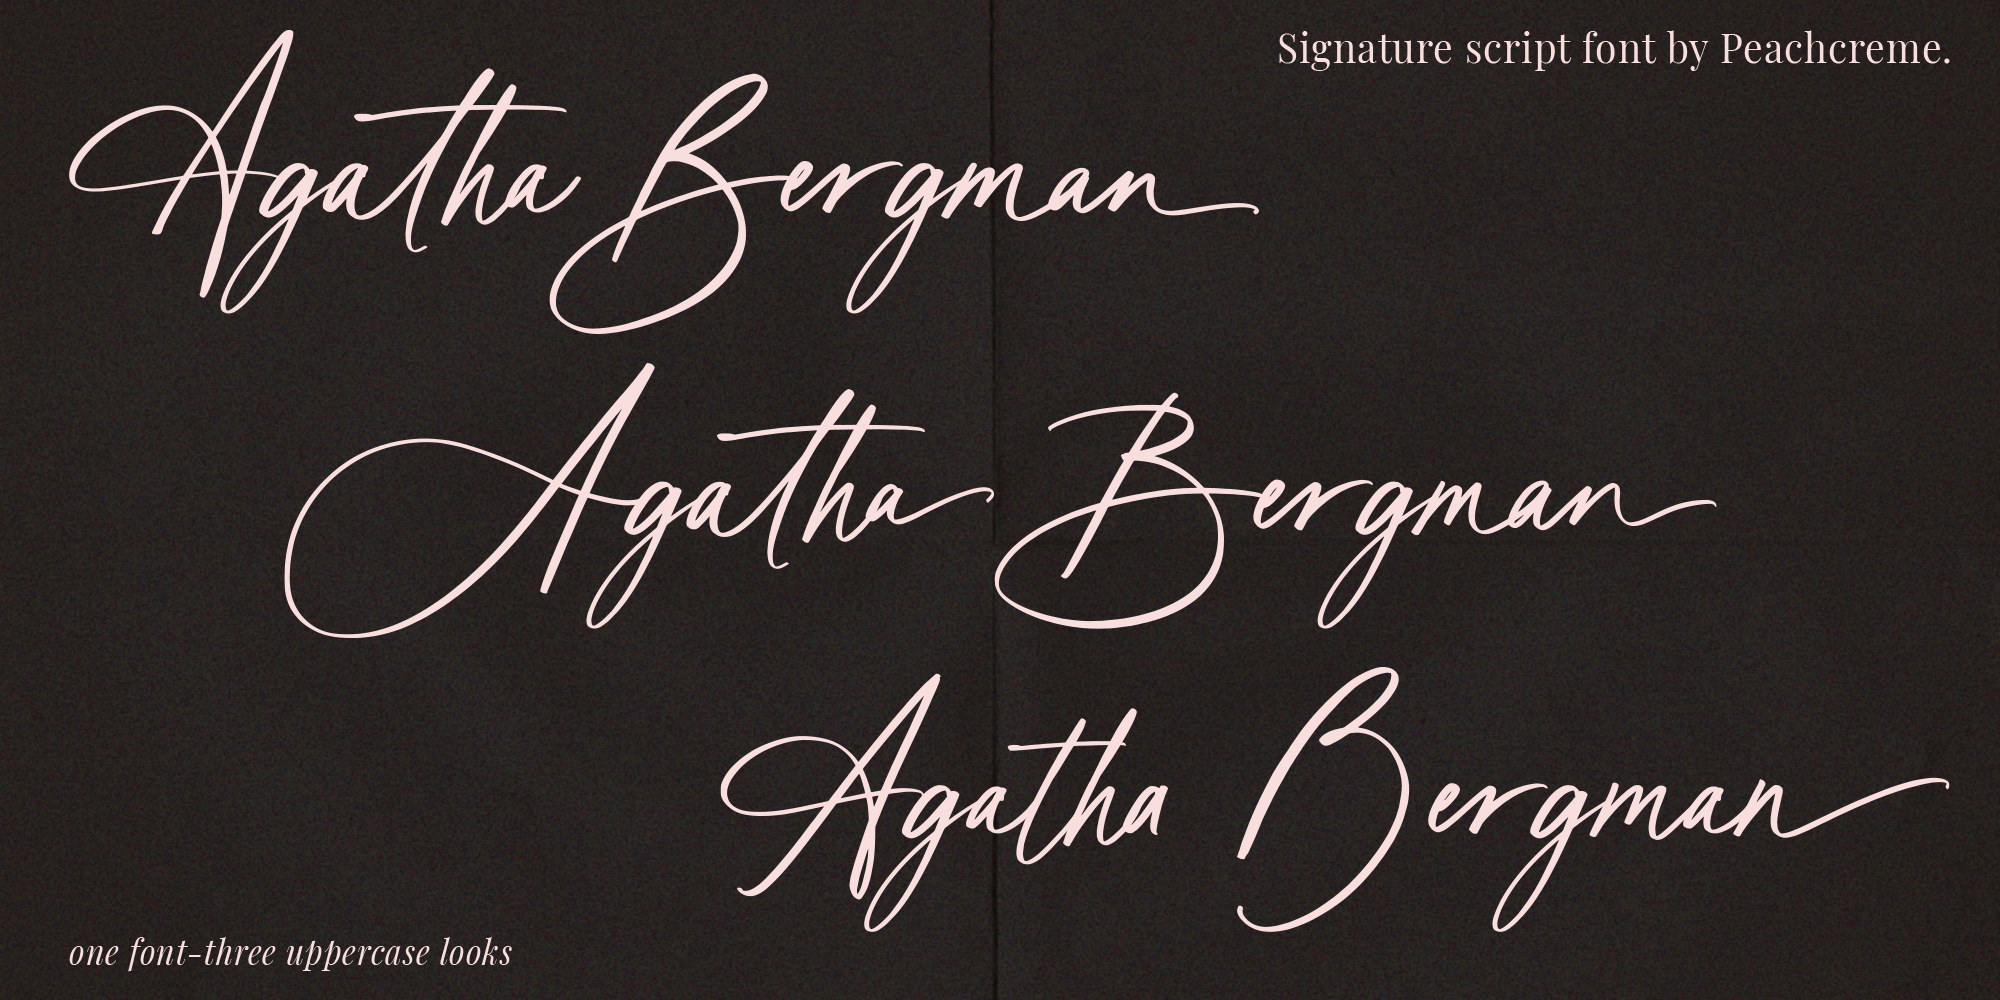 Signature script font by Peachcreme.
Agatha Bergman
Agatha Bergman
Agatha Bergman
one font-three uppercase looks